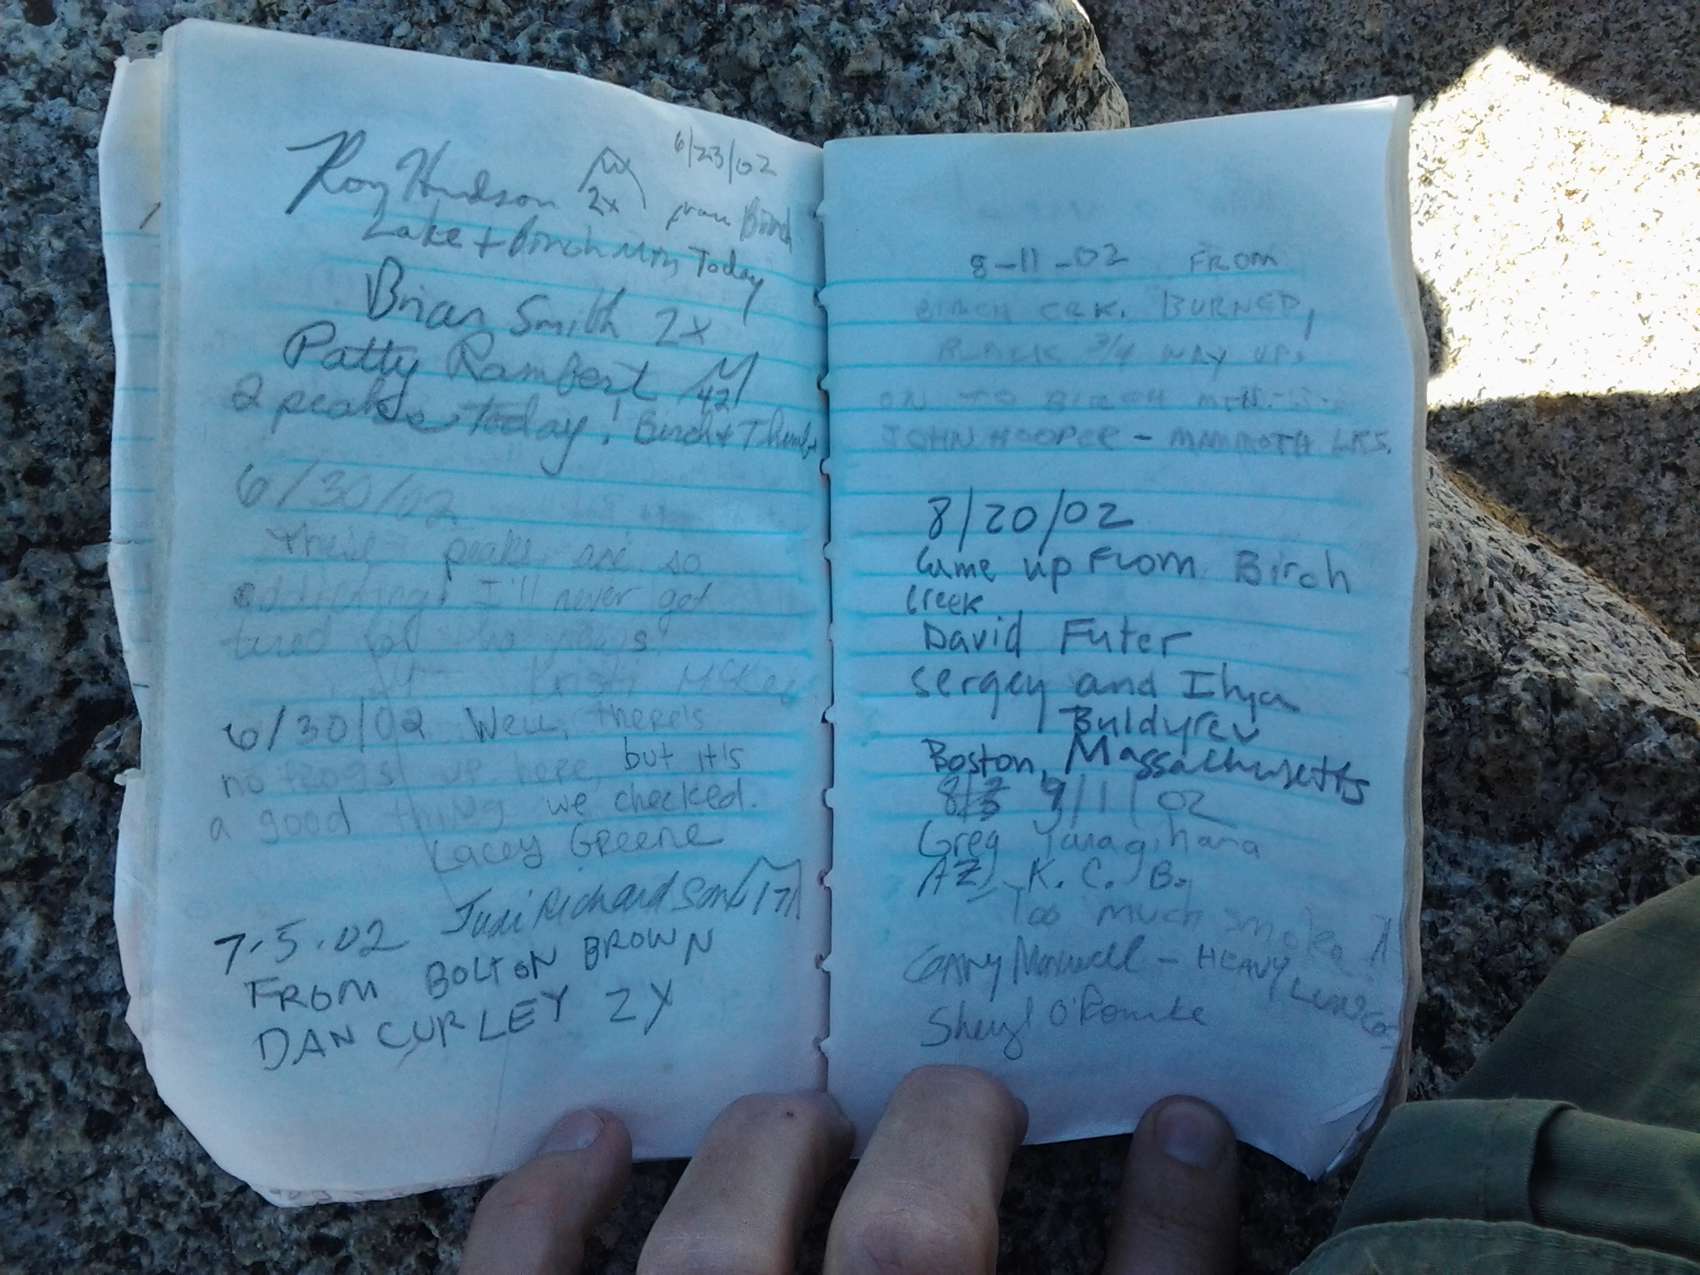 6/23/02
Roy Hudson 2x from Birch
Lake + Birch Mtn Today
Brian Smith 2x
Patty Rambert M 42
2 peaks Today! Birch + Thumb
6/30/02
These peaks are so
addicting! I'll never get
tired of
Kristi McKay
6/30/02 Well, there's
no frogs up here, but it's
a good thing we checked.
Lacey Greene
Judi Richardson 17
7.5.02
FROM BOLTON BROWN
DAN CURLEY 2X
8-11-02 FROM
BIRCH CRK. BURNED,
BLACK 3/4 WAY UP.
ON TO BIRCH MTN.
JOHN HOOPER - MAMMOTH LKS.
8/20/02
Came up From Birch
Creek
David Futer
Sergey and Ilya
Buldyrev
Boston, Massachusetts
9/1/02
Greg Yanagihara
AZ, K. C. B.
Too much smoke
Maxwell - HEAVY
Sheryl O'Rourke